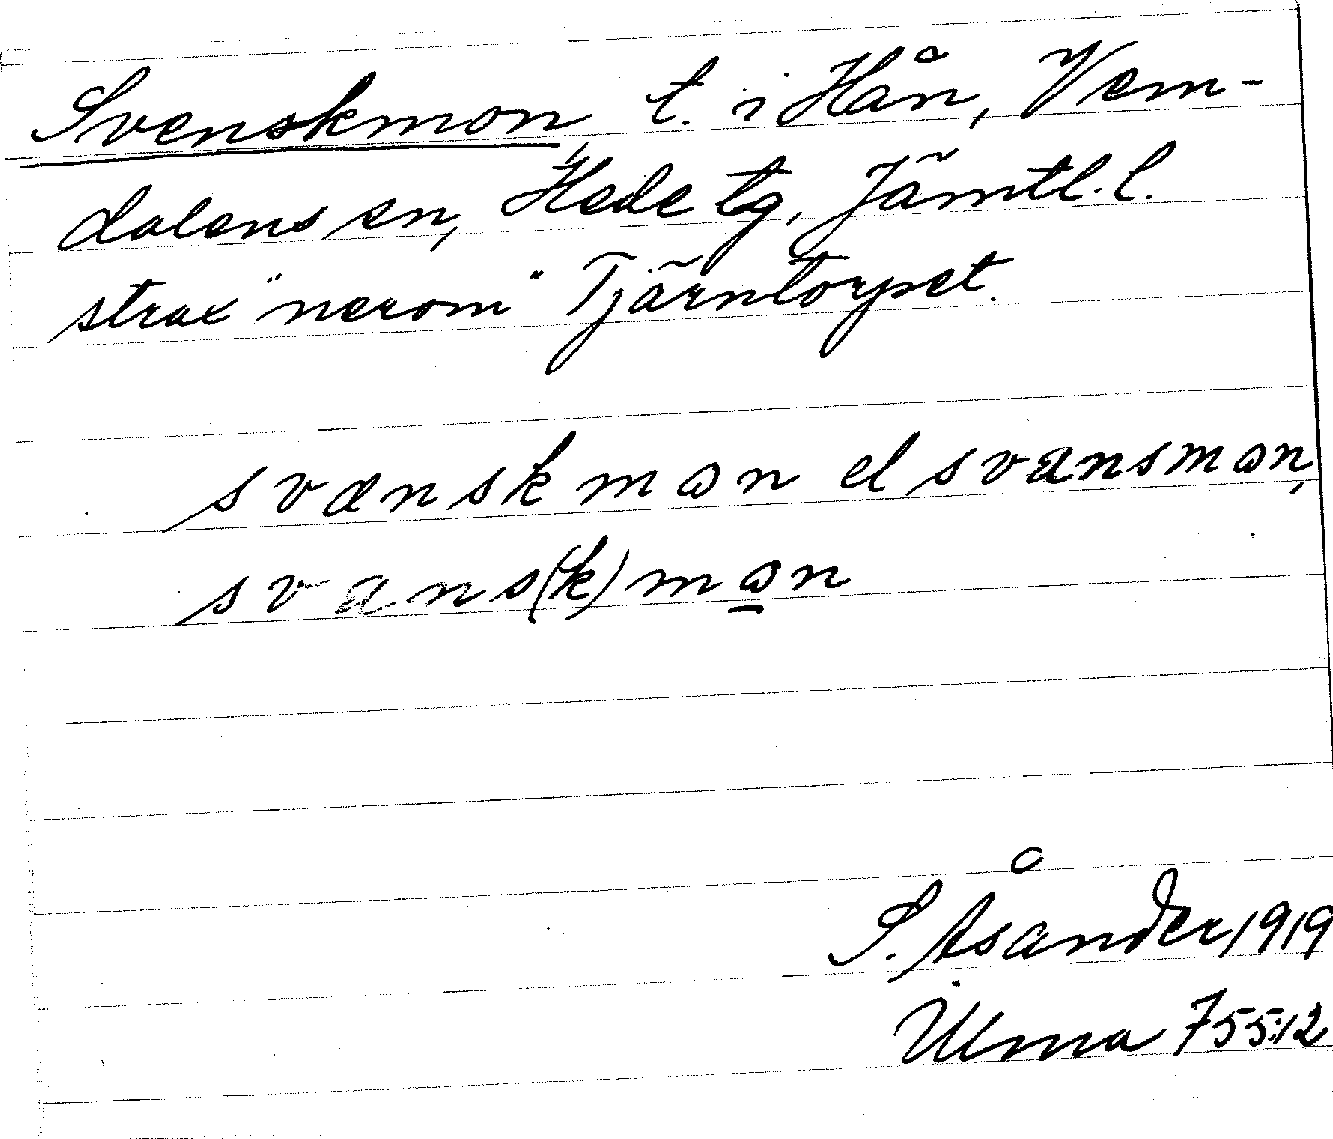 Svenskmon, t. i Hån, Vem-
dalens sn, Hede tg, Jämtl. l.
strax "nerom" Tjärntorpet.
svænskmɷn el svansmɷn,
svans(k)mɷ̲n
S. Åsander 1919
Ulma 755:12